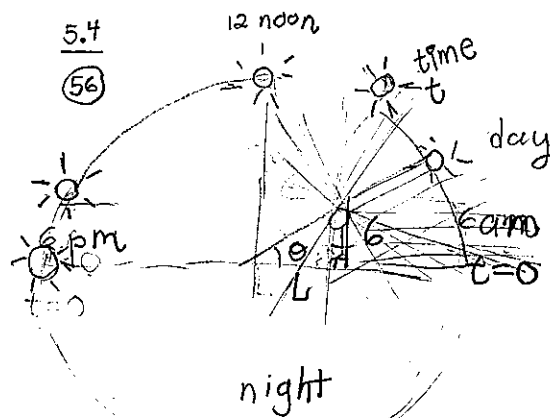 5.4
56
12 noon
time
t
day
6 pm
6 am
θ
6
t=0
L
night